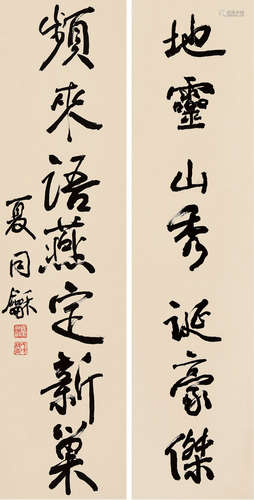 地靈山秀誕豪傑
頻來語燕定新巢
夏同龢